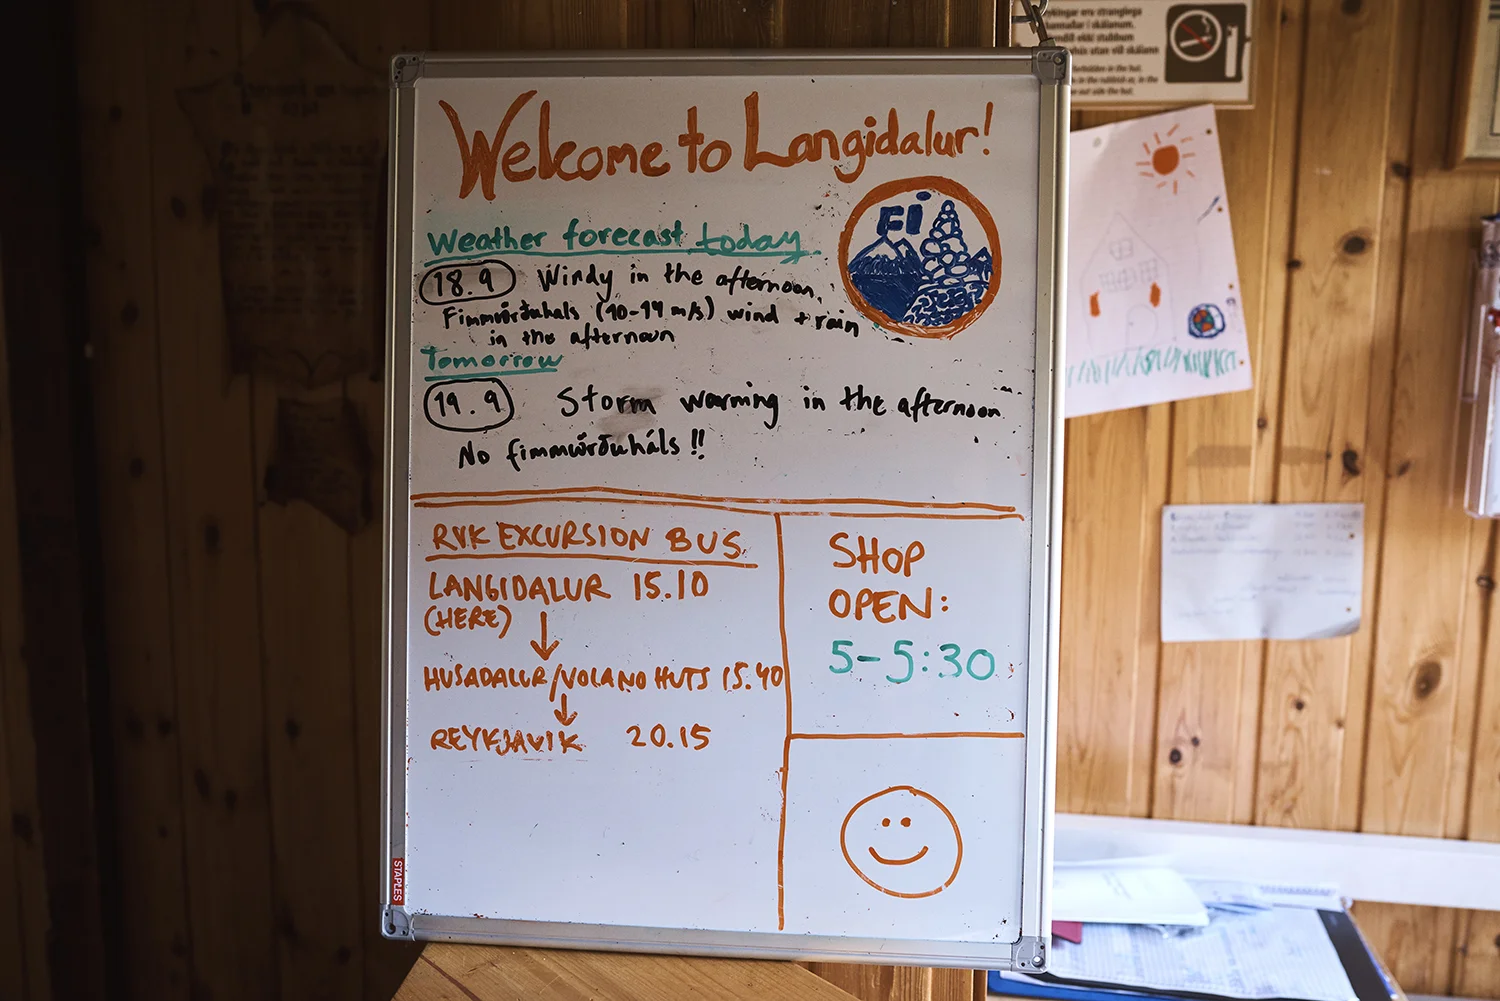 Welcome to Langidalur!
FÍ
Weather forecast today
18.9 Windy in the afternoon,
Fimmvörðuhals (10-14 m/s) wind + rain
in the afternoon
Tomorrow
19.9 Storm warning in the afternoon
No fimmvörðuháls !!
RVK EXCURSION BUS
LANGIDALUR 15.10
(HERE)
HUSADALUR/VOLANO HUTS 15.40
REYKJAVIK 20.15
SHOP
OPEN:
5-5:30
STAPLES